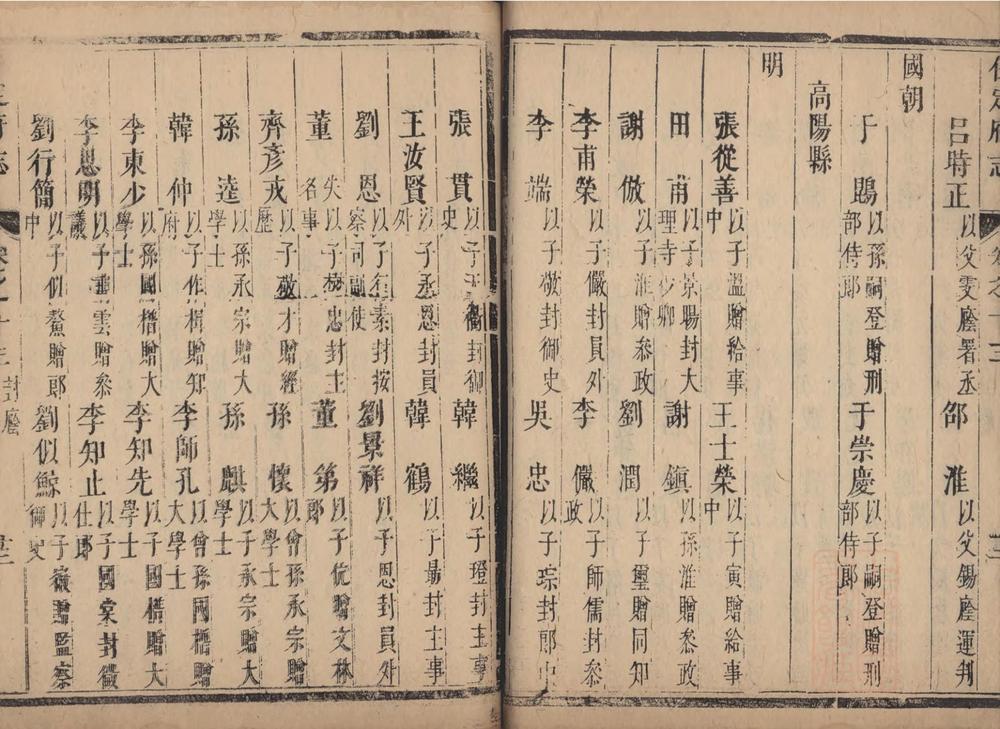 保定府志
呂時正 以父雯廕署丞 邵淮 以父錫廕運判
國朝
于鵾 以孫嗣登贈刑部侍郎 于崇慶 以子嗣登贈刑部侍郎
高陽縣
明
張從善 以子溫贈給事中 王士榮 以子寅贈給事中
田甫 以子景暘封大理寺少卿 謝鎮 以孫淮贈參政
謝倣 以子淮贈參政 劉潤 以子璽贈同知
李甫榮 以子儼封員外 李儼 以子師儒封參政
李端 以子敬封御史 吳忠 以子琮封郎中
張貫 以子 封御史 韓繼 以子璒封主事
王汝賢 以子丞恩封員外 韓鶴 以子最封主事
劉恩 以子行素封按察司副使 劉景祥 以子恩封員外
董 失名 以子 忠封主事 董第 以子伉贈文林郎
齊彥戎 以子敬才贈經歷 孫懷 以曾孫承宗贈大學士
孫逵 以孫承宗贈大學士 孫麒 以子承宗贈大學士
韓仲 以子作楫贈知府 李師孔 以曾孫國𣚴贈大學士
李東少 以孫國𣚴贈大學士 李知先 以子國𣚴贈大學士
李思明 以子 雲贈參議 李知止 以子國棠封徵仕郎
劉行簡 以子似鰲贈郎中 劉似鯨 以子 贈監察御史
封廕